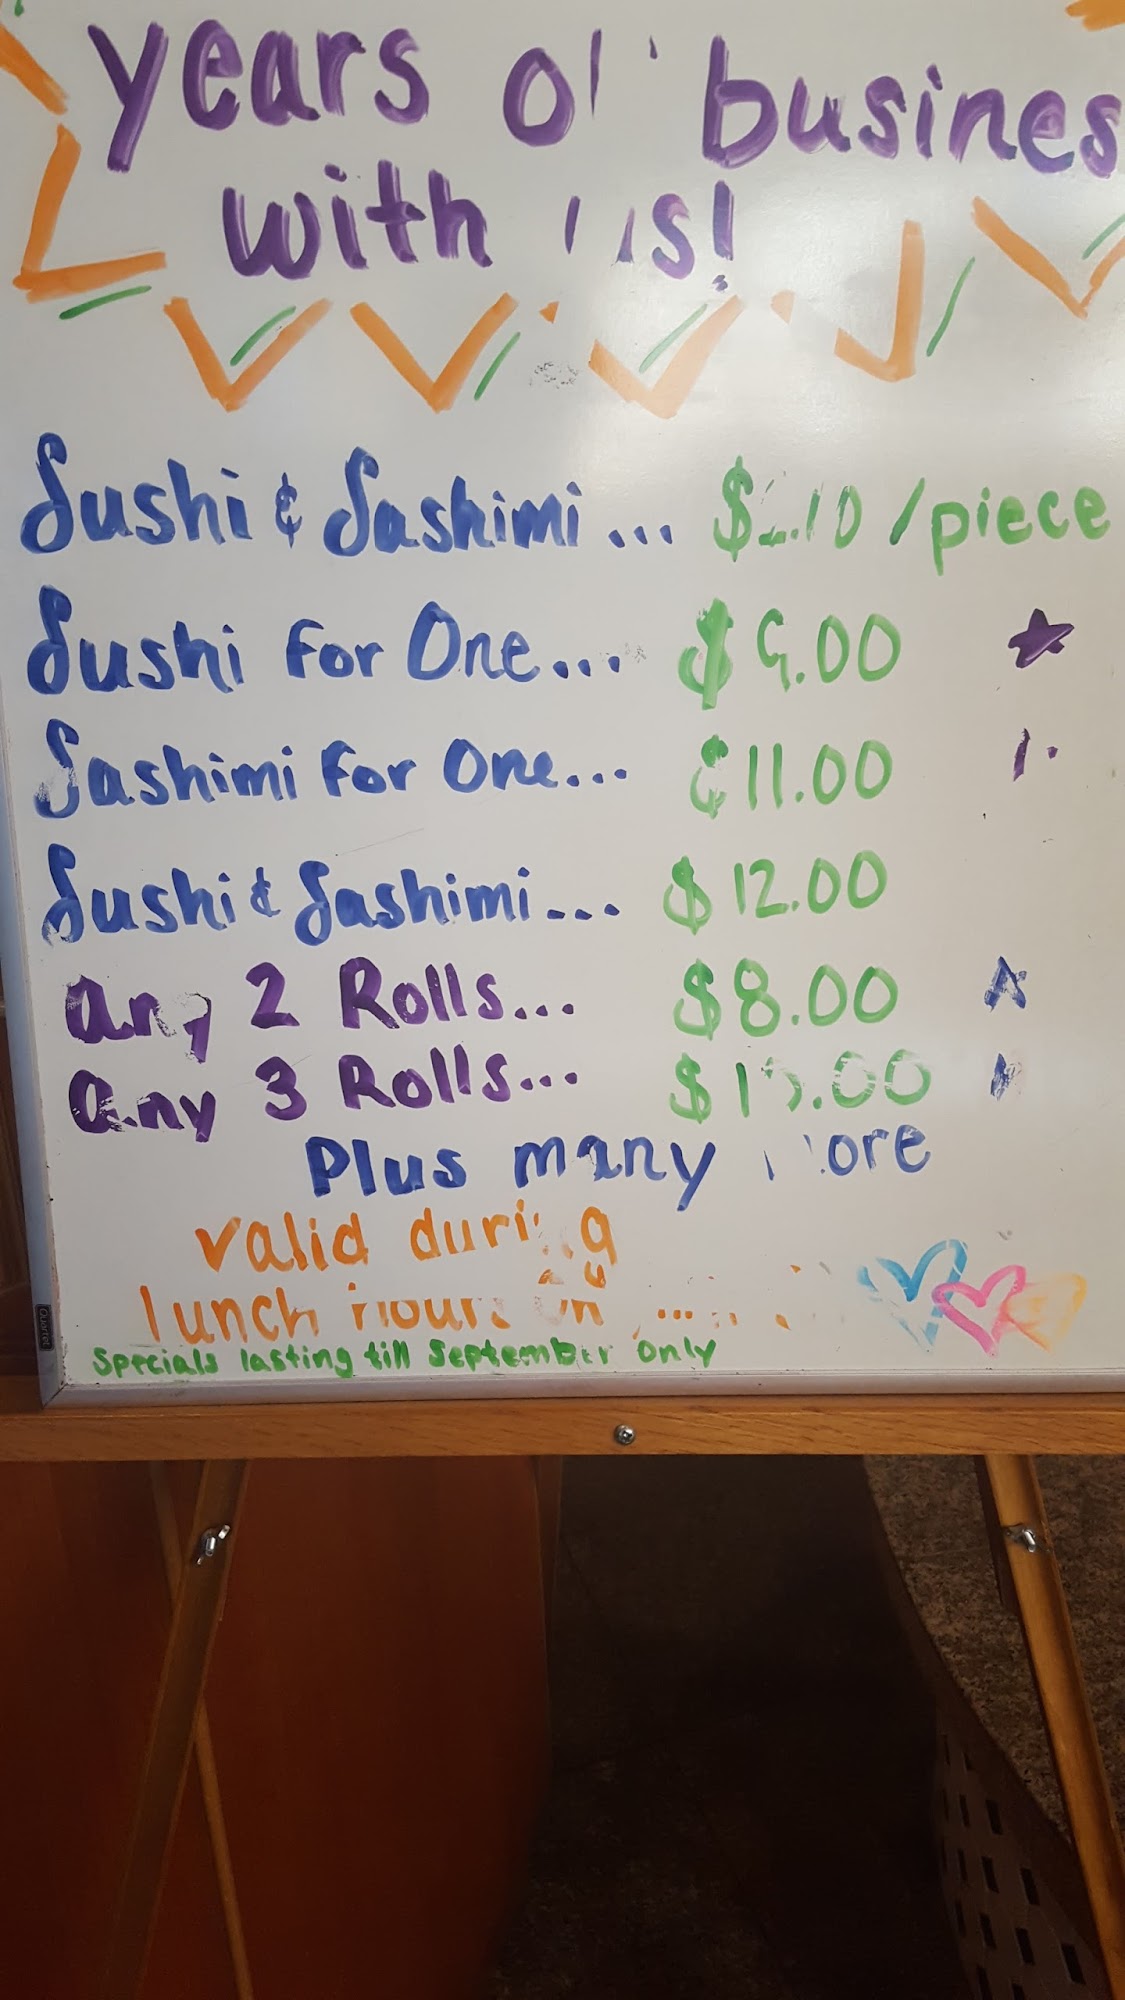 years of busines
with us!
Sushi & Sashimi ... $2.10 /piece
Sushi For One... $9.00
Sashimi For One... $11.00
Sushi & Sashimi... $12.00
any 2 Rolls... $8.00
any 3 Rolls...
Plus many more
valid during
lunch hours
Specials lasting till September only
Quartet